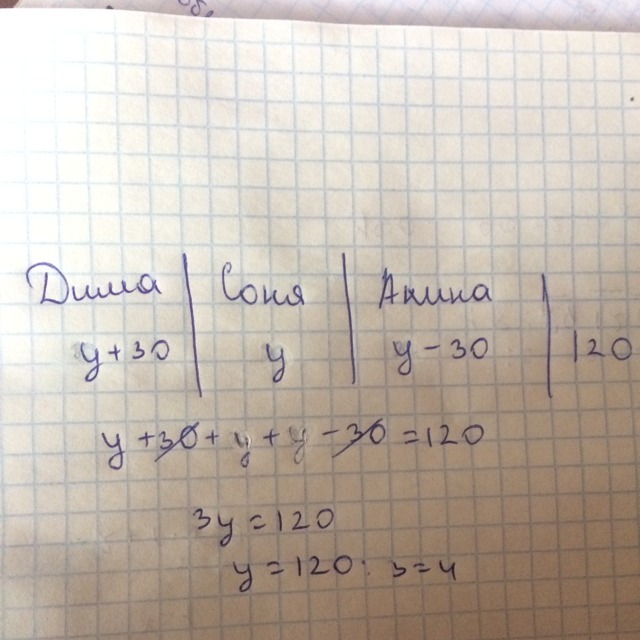 Дима | Соня | Амина |
y + 30 | y | y - 30 | 120
y + 30 + y + y - 30 = 120
3y = 120
y = 120 : 3 = 4